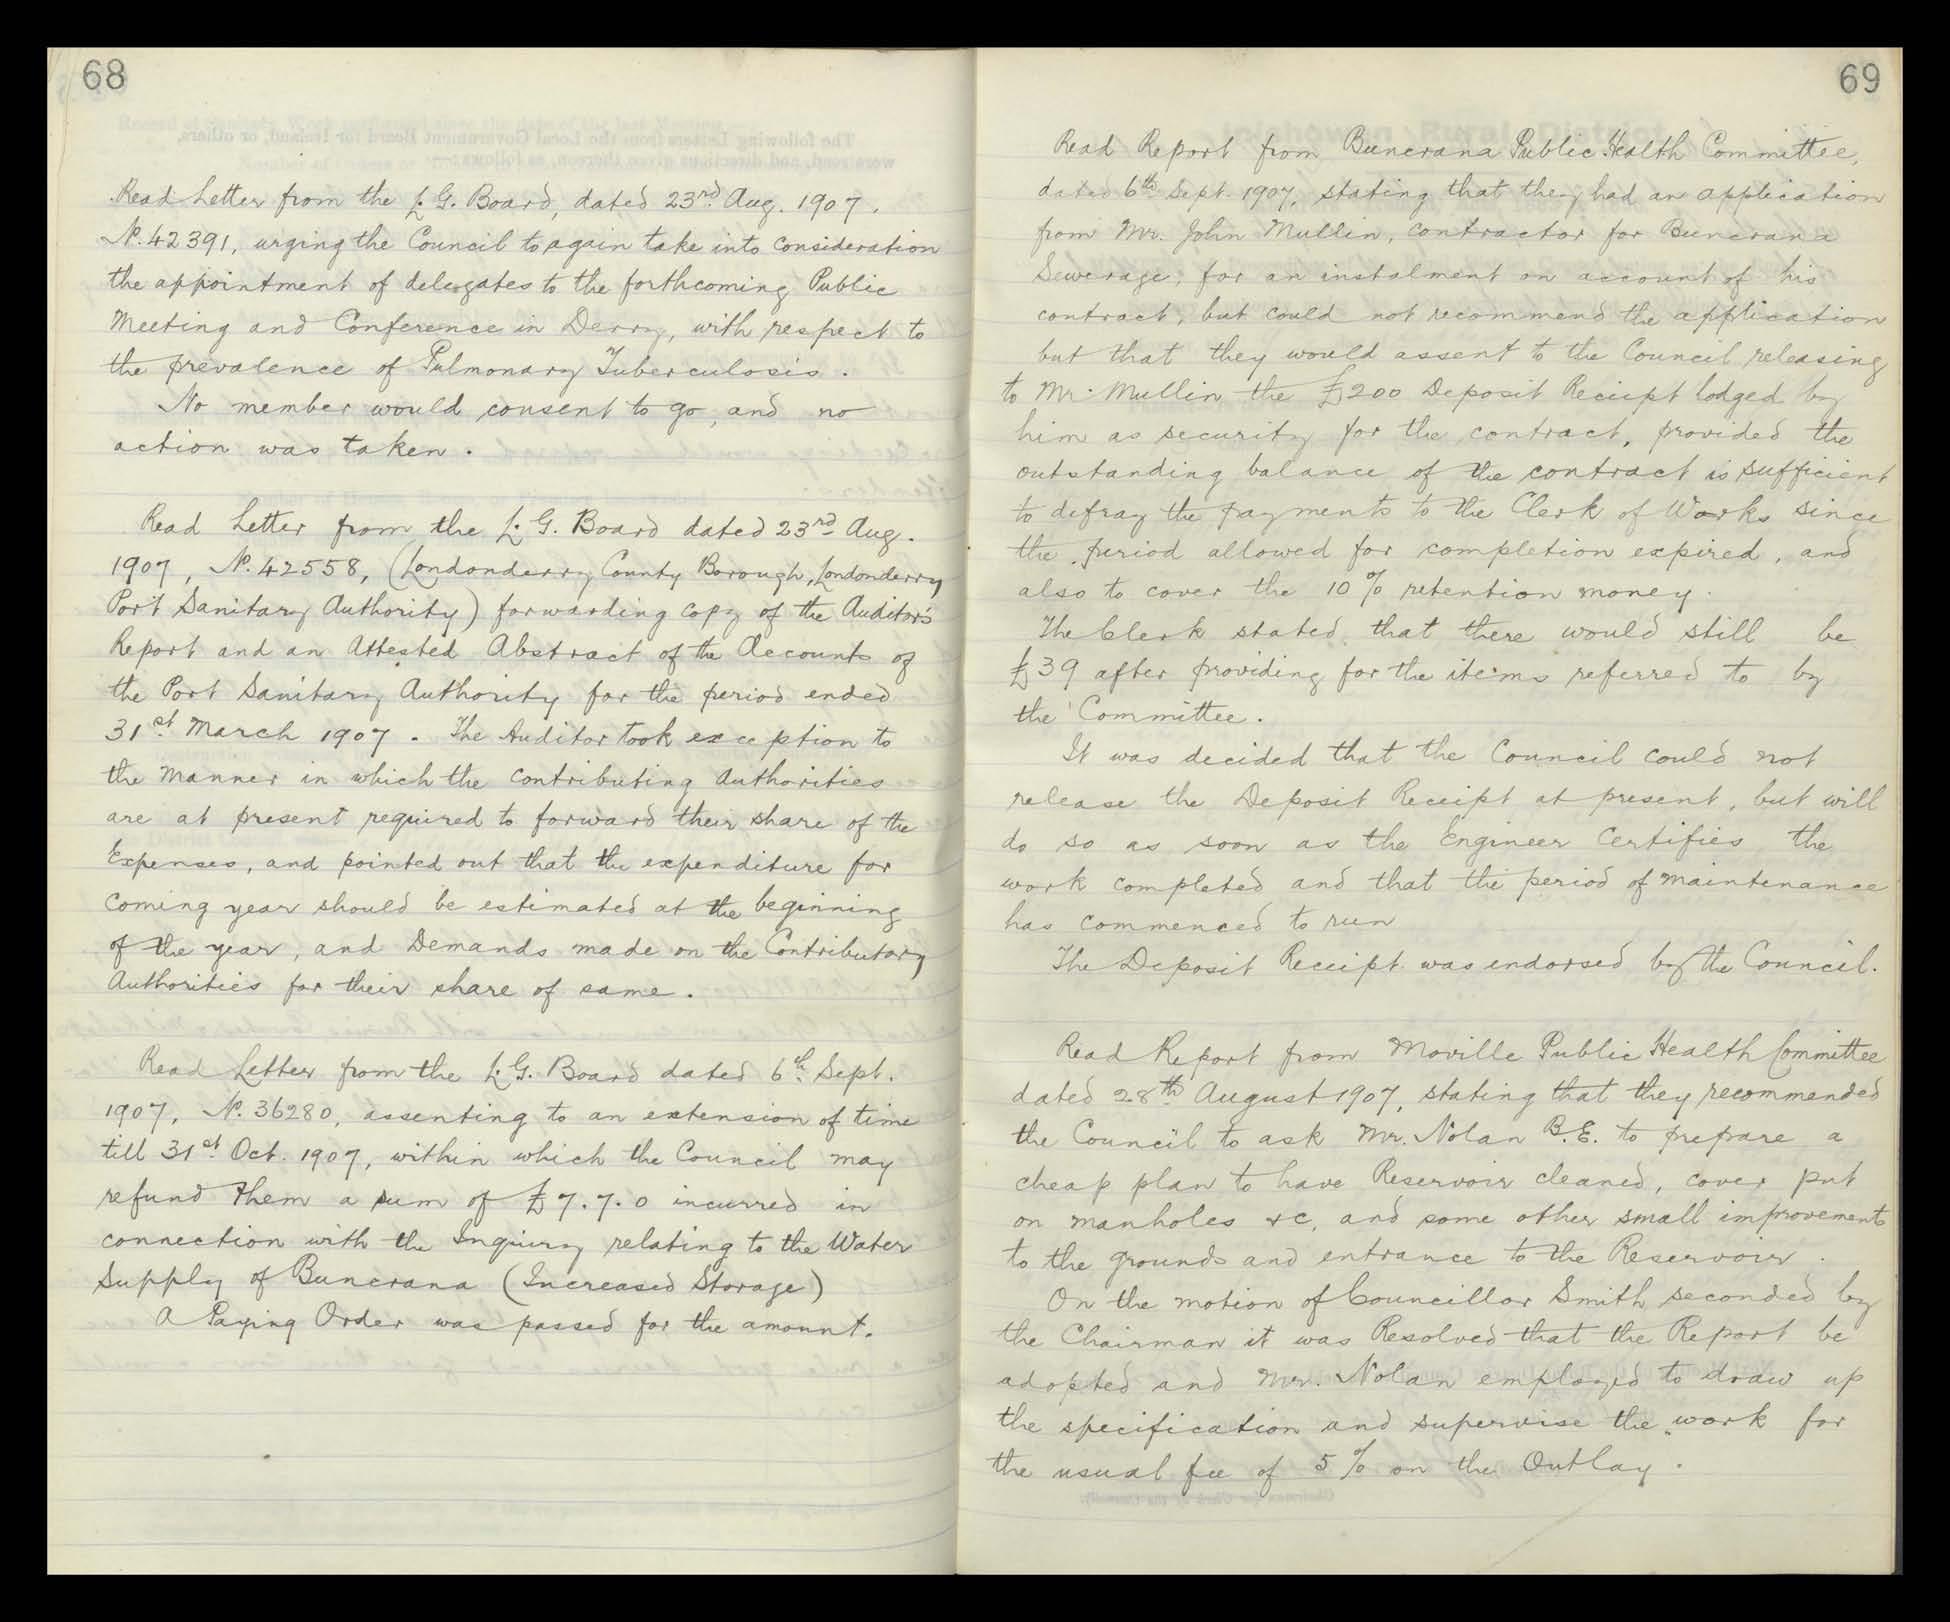 68
Read Letter from the L. G. Board, dated 23rd Aug. 1907.
No. 42391, urging the Council to again take into consideration
the appointment of delegates to the forthcoming Public
Meeting and Conference in Derry, with respect to
the prevalence of Pulmonary Tuberculosis.
No member would consent to go, and no
action was taken.
Read Letter from the L. G. Board dated 23rd Aug.
1907, No. 42558, (Londonderry County Borough, Londonderry
Port Sanitary Authority) forwarding copy of the Auditor's
Report and an Attested Abstract of the Accounts of
the Port Sanitary Authority for the period ended
31st March 1907. The Auditor took exception to
the manner in which the contributing authorities
are at present required to forward their share of the
Expenses, and pointed out that the expenditure for
coming year should be estimated at the beginning
of the year, and Demands made on the Contributory
Authorities for their share of same.
Read Letter from the L. G. Board dated 6th Sept.
1907, No. 36280, assenting to an extension of time
till 31st Oct. 1907, within which the Council may
refund them a sum of £7.7.0 incurred in
connection with the Inquiry relating to the Water
Supply of Buncrana (Increased Storage)
A Paying Order was passed for the amount.
69
Read Report from Buncrana Public Health Committee,
dated 6th Sept. 1907, stating that they had an application
from Mr. John Mullin, contractor for Buncrana
Sewerage, for an instalment on account of his
contract, but could not recommend the application
but that they would assent to the Council releasing
to Mr. Mullin the £200 Deposit Receipt lodged by
him as security for the contract, provided the
outstanding balance of the contract is sufficient
to defray the payments to the Clerk of Works since
the period allowed for completion expired, and
also to cover the 10% retention money.
The Clerk stated that there would still be
£39 after providing for the items referred to by
the Committee.
It was decided that the Council could not
release the Deposit Receipt at present, but will
do so as soon as the Engineer Certifies the
work completed and that the period of maintenance
has commenced to run
The Deposit Receipt was endorsed by the Council.
Read Report from Moville Public Health Committee
dated 28th August 1907, stating that they recommended
the Council to ask Mr. Nolan B.E. to prepare a
cheap plan to have Reservoir cleaned, cover put
on manholes &c, and some other small improvements
to the grounds and entrance to the Reservoir.
On the motion of Councillor Smith seconded by
the Chairman it was Resolved that the Report be
adopted and Mr. Nolan employed to draw up
the specification and supervise the work for
the usual fee of 5% on the Outlay.